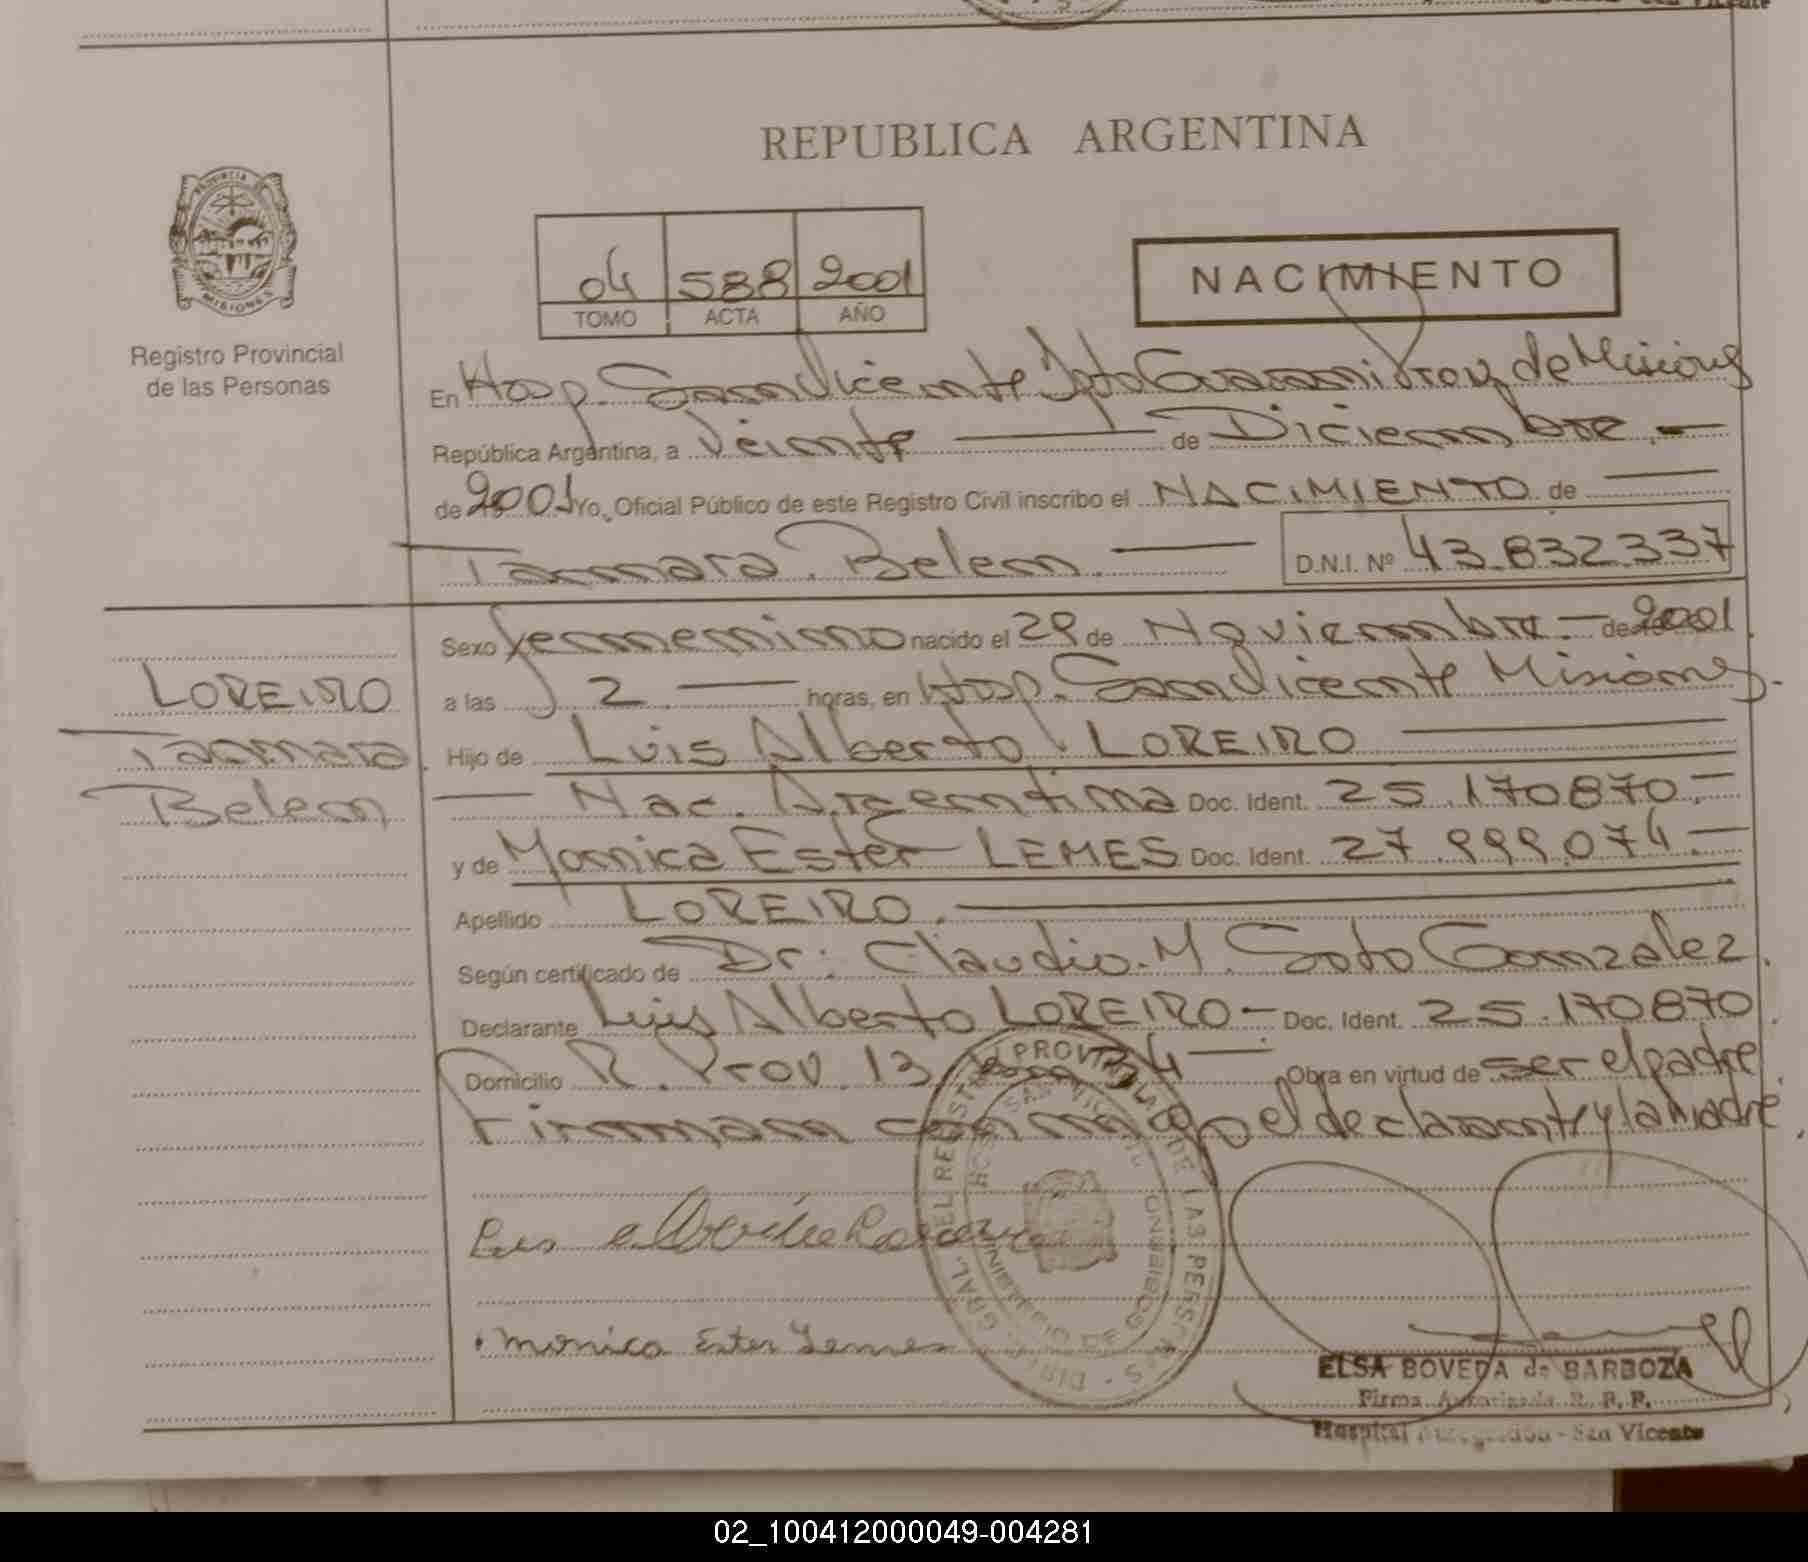 REPUBLICA ARGENTINA
PROVINCIA DE
MISIONES
Registro Provincial
de las Personas
04 588 2001
TOMO ACTA AÑO
NACIMIENTO
En Hosp. San Vicente Dpto Guarani Prov de Misiones
República Argentina, a Veinte — de Diciembre.—
de 2001 Yo, Oficial Público de este Registro Civil inscribo el NACIMIENTO de —
Tamara Belen — D.N.I. Nº 43.832.337
LOREIRO
Tamara
Belen
Sexo femenino nacido el 29 de Noviembre.— de 2001
a las 2 — horas, en Hosp. San Vicente Misiones.
Hijo de Luis Alberto LOREIRO —
— Nac. Argentina Doc. Ident. 25.170870.—
y de Monica Ester LEMES Doc. Ident. 27.999.074.—
Apellido LOREIRO. —
Según certificado de Dr: Claudio. M. Soto Gonzalez.
Declarante Luis Alberto LOREIRO — Doc. Ident. 25.170870.
Domicilio R. Prov. 13 34 — Obra en virtud de ser el padre
Firman conmigo el declarante y la Madre.
Luis
Monica Ester Lemes
DIREC. GRAL. DEL REGISTRO PROV. DE LAS PERSONAS
MINISTERIO DE GOBIERNO
ELSA BOVEDA de BARBOZA
Firma Autorizada R. P. P.
Hospital - San Vicente
02_100412000049-004281